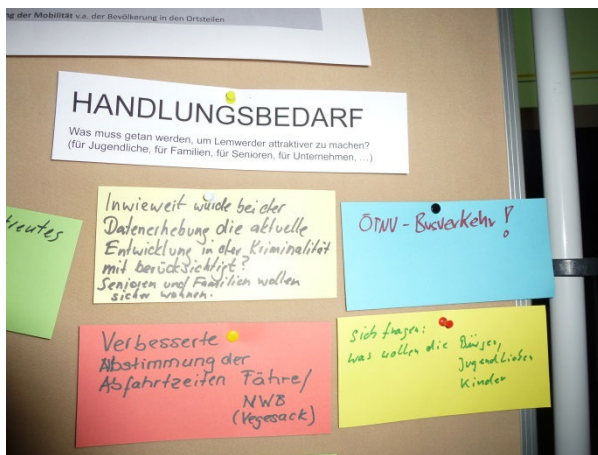 ng der Mobilität v.a. der Bevölkerung in den Ortsteilen
HANDLUNGSBEDARF
Was muss getan werden, um Lemwerder attraktiver zu machen?
(für Jugendliche, für Familien, für Senioren, für Unternehmen, ...)
Inwieweit wurde bei der
Datenerhebung die aktuelle
Entwicklung in der Kriminalität
mit berücksichtigt?
Senioren und Familien wollen
sicher wohnen.
ÖPNV - Busverkehr!
treutes
Verbesserte
Abstimmung der
Abfahrtzeiten Fähre/
NWB
(Vegesack)
Sich fragen:
was wollen die Bürger,
Jugendlichen
Kinder